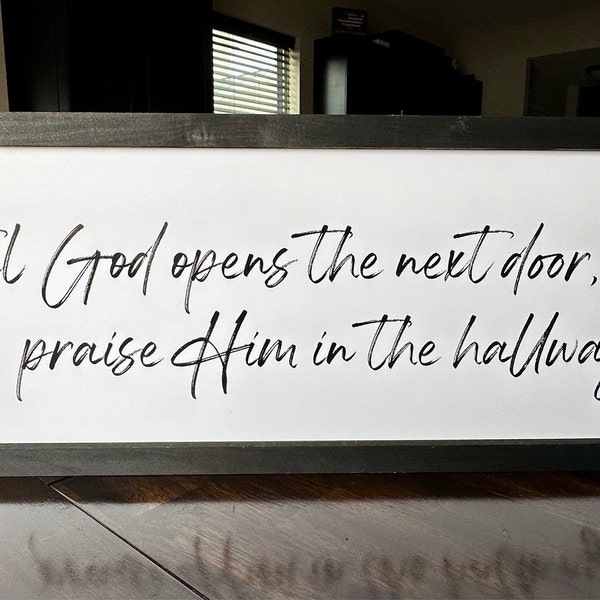 God opens the next door,
praise Him in the